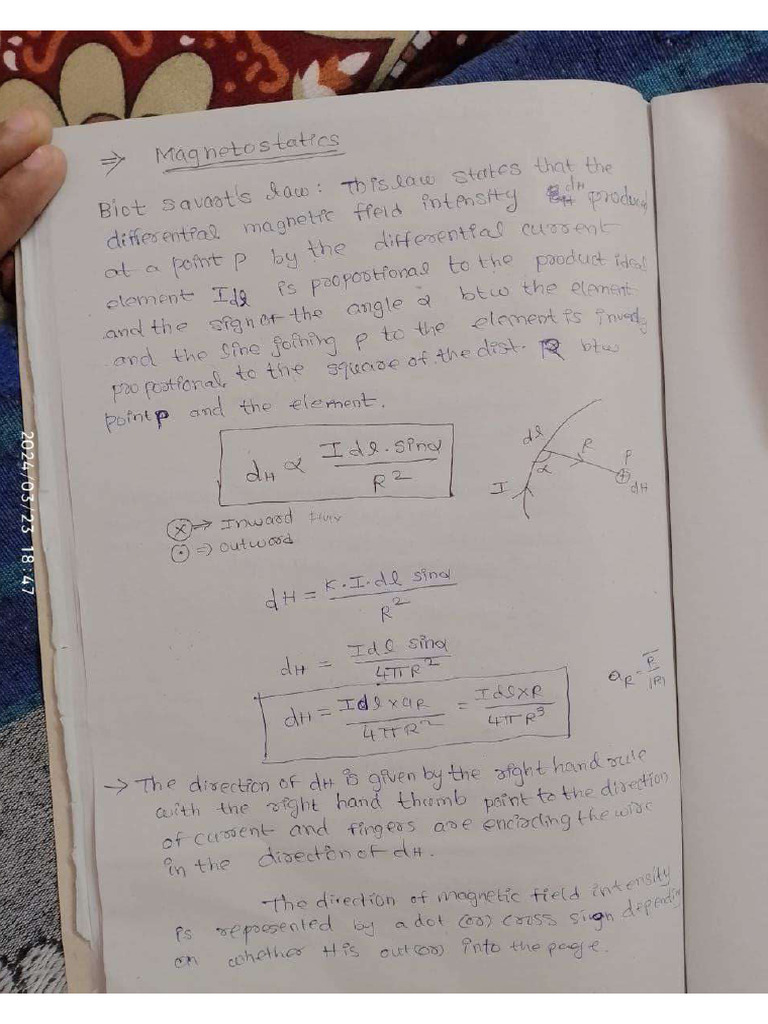 ⇒ Magnetostatics
Biot savart's law: This law states that the
differential magnetic field intensity dH produced
at a point P by the differential current
element Idl is proportional to the product ideal
and the sign of the angle α btw the element
and the line joining P to the element is inversly
proportional to the square of the dist. R btw
point P and the element.
dH ∝ Idl.sinα / R²
dl
R
P
α
I
dH
ⓧ => Inward
⊙ => outward
dH = K.I.dl sinα / R²
dH = Idl sinα / 4πR²
aR = R̄ / |R|
dH = Idl×aR / 4πR² = Idl×R / 4πR³
→ The direction of dH is given by the right hand rule
with the right hand thumb point to the direction
of current and fingers are encircling the wire
in the direction of dH.
The direction of magnetic field intensity
is represented by a dot (or) cross sign depending
on whether H is out (or) into the page.
2024/03/23 18:47